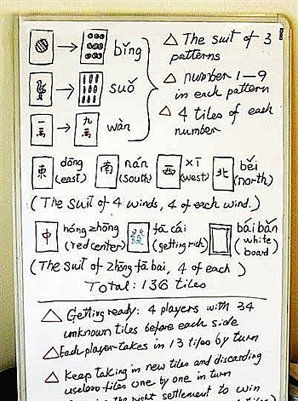 → bǐng
→ suǒ
一萬 → 九萬 wàn
△ The suit of 3 patterns
△ number 1—9 in each pattern
△ 4 tiles of each number
東 dōng (east) 南 nán (south) 西 xī (west) 北 běi (north)
(The suit of 4 winds, 4 of each wind.)
中 hóng zhōng (red center) fā cái (getting rich) bái bǎn (white board)
(The suit of zhōng fā bai, 4 of each)
Total: 136 tiles
△ Getting ready: 4 players with 34
unknown tiles before each side
△ Each player takes in 13 tiles by turn
△ Keep taking in new tiles and discarding
useless tiles one by one in turn
the right settlement to win